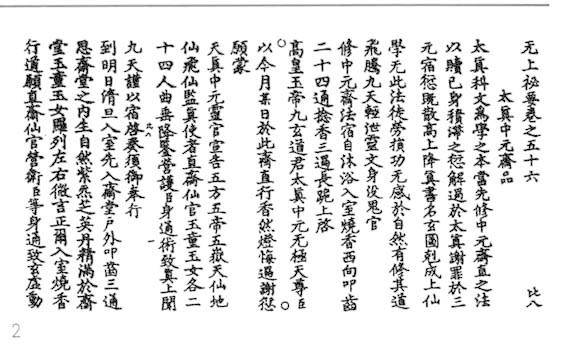 无上祕要卷之五十六 比八
太真中元齋品
太真科文為學之本當先修中元齋直之法
以贖已身積滯之愆解過於太真謝罪於三
元宿愆既散高上降真書名玄圖剋成上仙
學无此法徒勞損功无感於自然有修其道
飛騰九天輕泄靈文身没鬼官
修中元齋法宿自沐浴入室燒香西向叩齒
二十四通捻香三過長跪上啓
高皇玉帝九玄道君太真中元无極天尊臣
以今月某日於此齋直行香然燈悔過謝愆
願蒙
天真中元靈官宣告五方五帝五嶽天仙地
仙飛仙監真使者直齋仙官玉童玉女各二
十四人曲垂降鑒營護臣身通術致真上聞
九天謹以宿啓奏須御奉行
到明日清旦入室先入齋堂戶外叩齒三通
思齋堂之内生自然紫炁芝英丹精滿於齋
堂玉童玉女羅列左右微言正爾入室燒香
行道願直齋仙官營衛臣等身通致玄虛動
2